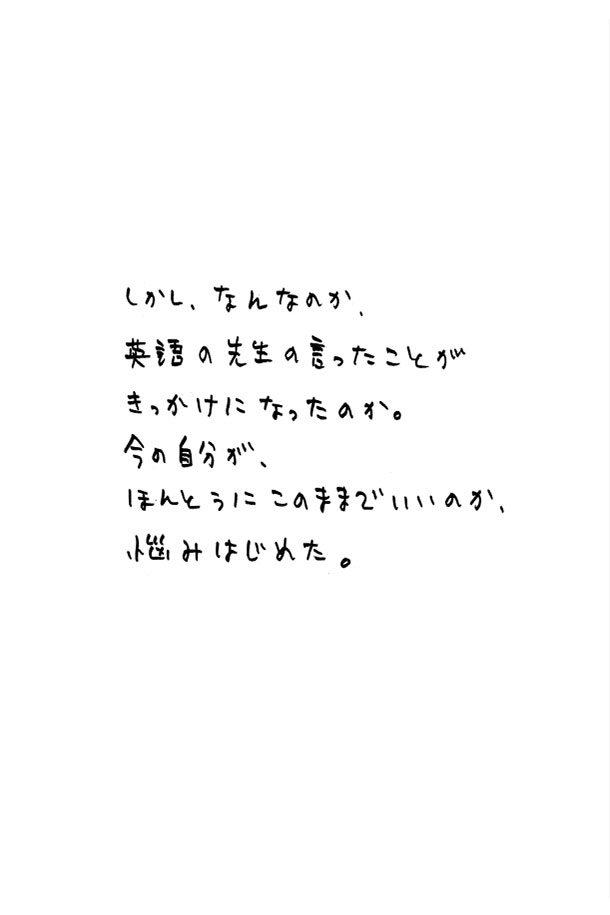 しかし、なんなのか、
英語の先生の言ったことが
きっかけになったのか。
今の自分が、
ほんとうにこのままでいいのか、
悩みはじめた。